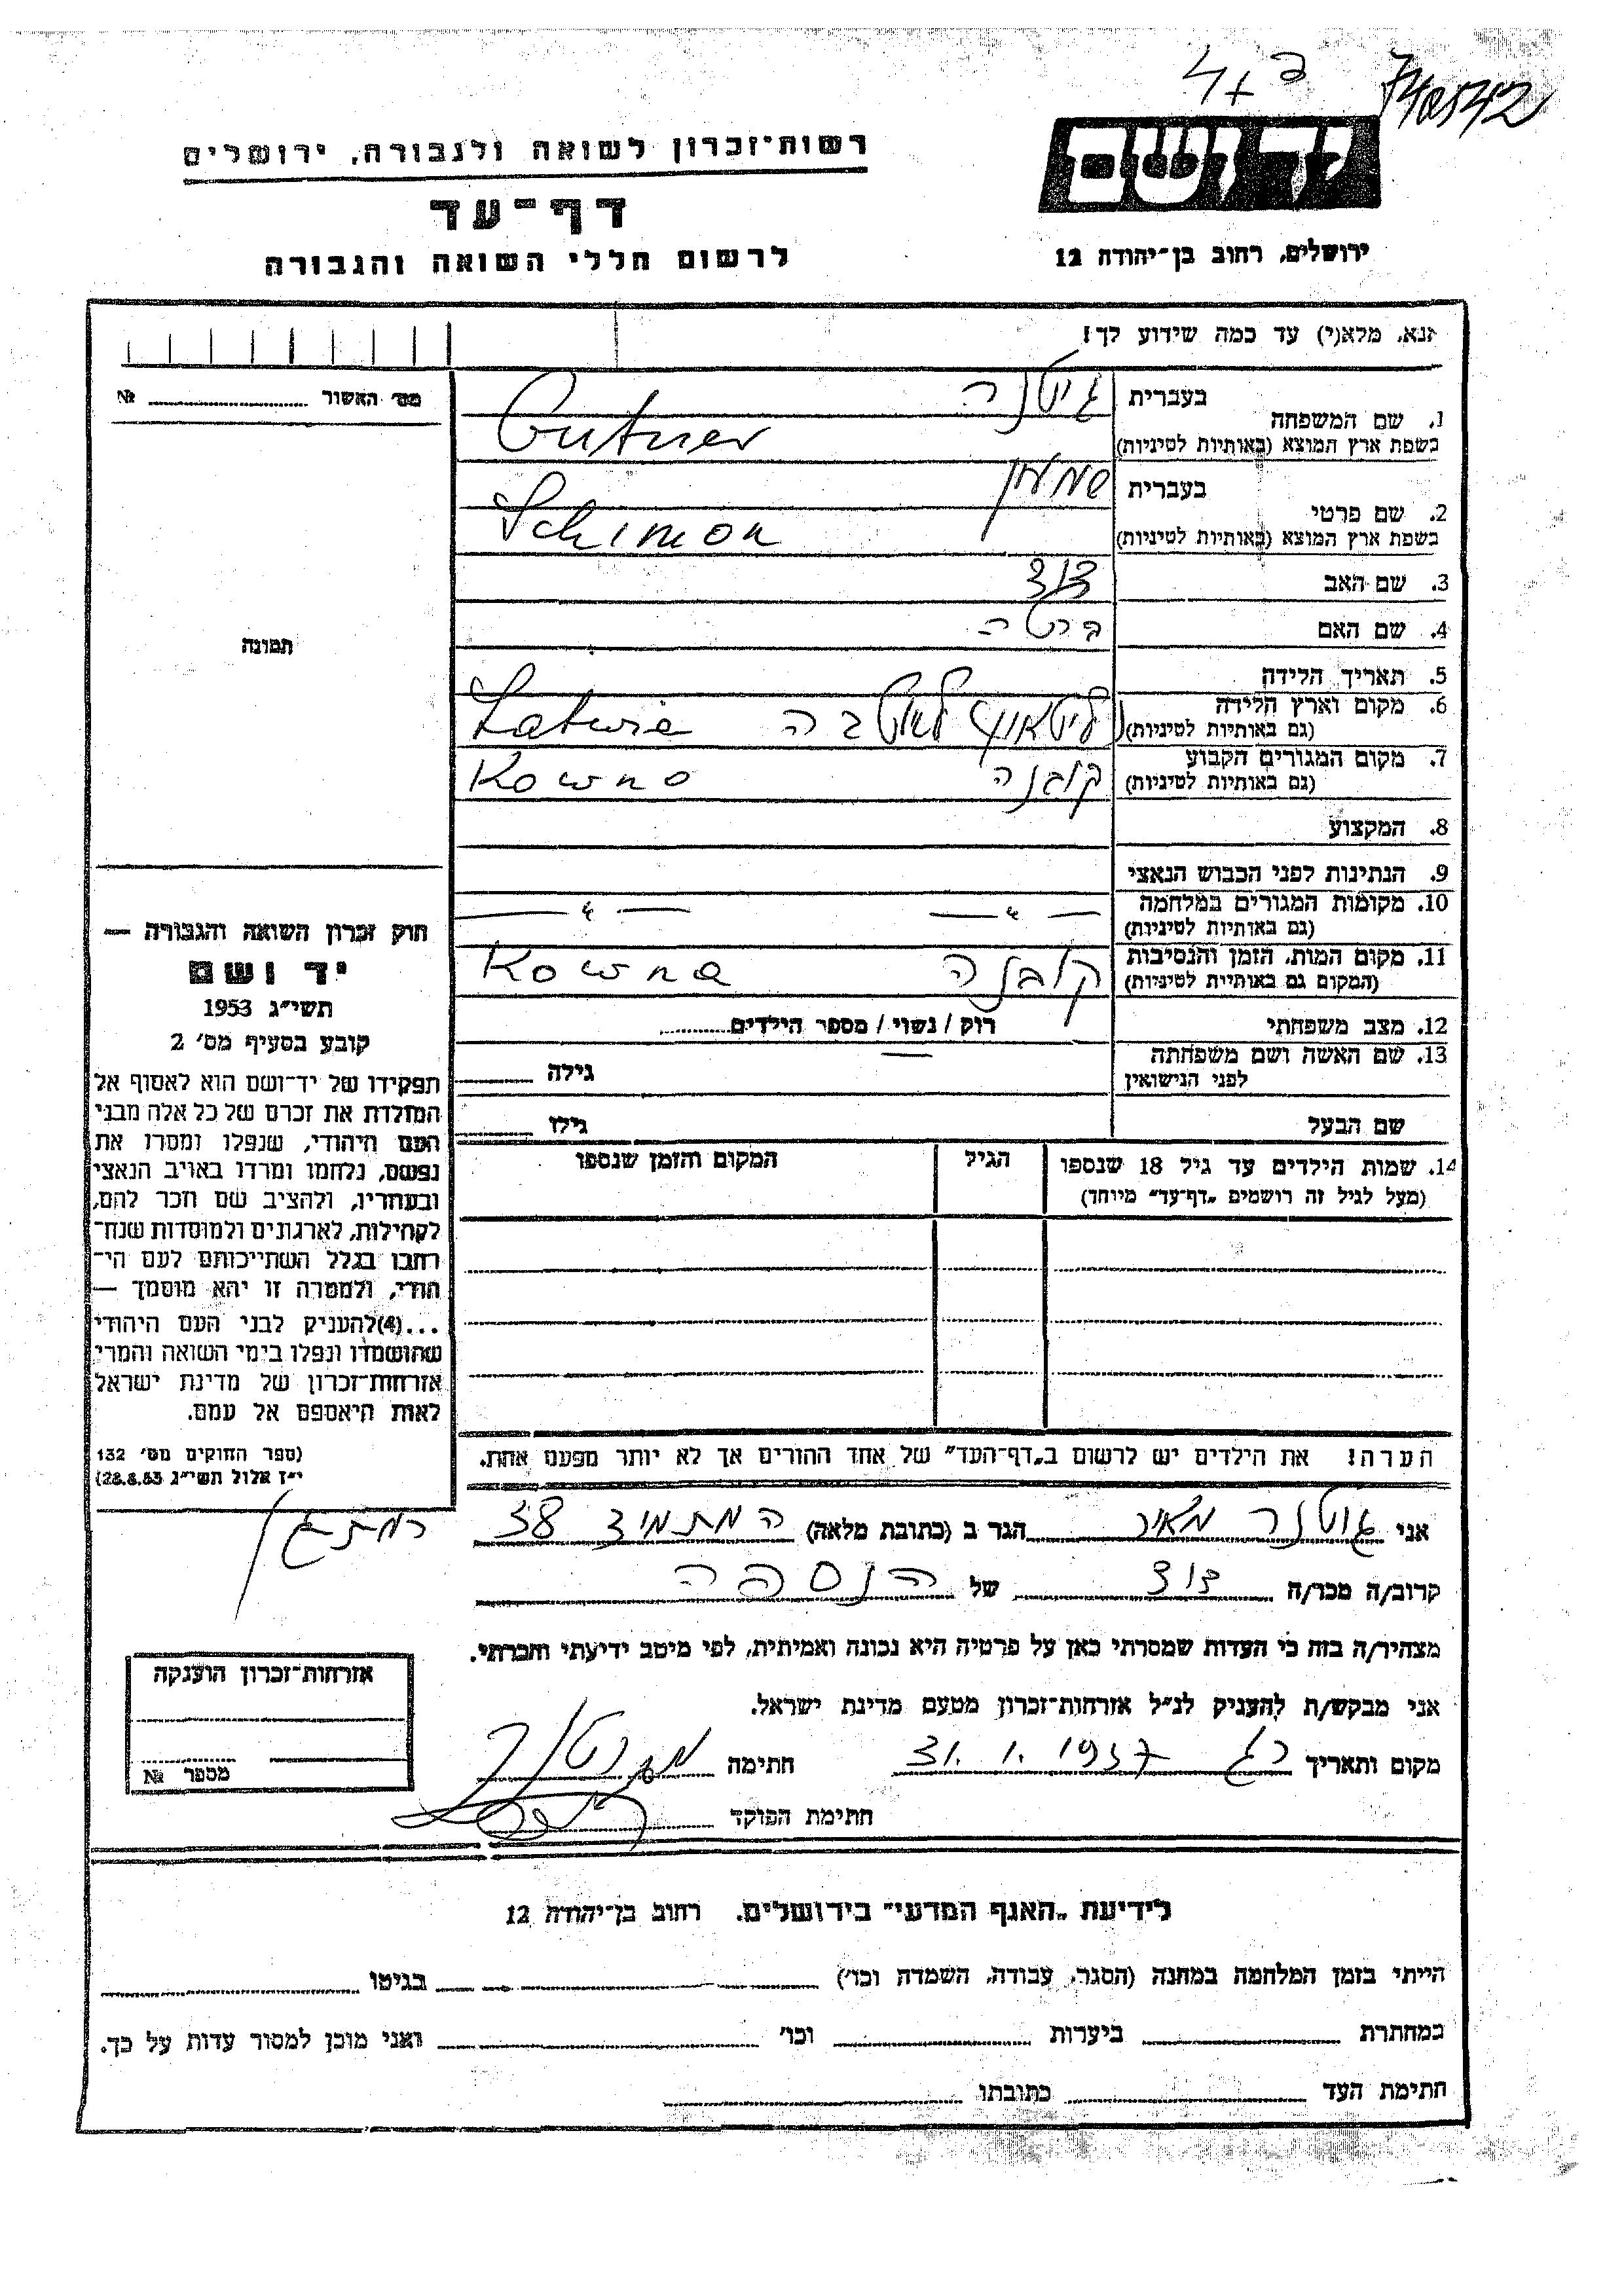 רשות־זכרון לשואה ולגבורה, ירושלים
דף־עד
לרשום חללי השואה והגבורה
יד ושם
ירושלים, רחוב בן־יהודה 12
אנא, מלא(י) עד כמה שידוע לך!
מס׳ האשור № ........
1. שם המשפחה
בעברית
בשפת ארץ המוצא (באותיות לטיניות)
Gutner
2. שם פרטי
בעברית שמעון
בשפת ארץ המוצא (באותיות לטיניות) Schimon
3. שם האב דוד
4. שם האם ברטה
5. תאריך הלידה
6. מקום וארץ הלידה (גם באותיות לטיניות) לאטביה Latwia
7. מקום המגורים הקבוע (גם באותיות לטיניות) קובנה Kowno
8. המקצוע
9. הנתינות לפני הכבוש הנאצי
10. מקומות המגורים במלחמה (גם באותיות לטיניות) — " — — " —
11. מקום המות, הזמן והנסיבות (המקום גם באותיות לטיניות) קובנה Kowno
12. מצב משפחתי רוק / נשוי / מספר הילדים........
13. שם האשה ושם משפחתה לפני הנישואין — גילה
שם הבעל גילו
14. שמות הילדים עד גיל 18 שנספו
(מעל לגיל זה רושמים „דף־עד" מיוחד)
הגיל
המקום והזמן שנספו
תמונה
חוק זכרון השואה והגבורה —
יד ושם
תשי״ג 1953
קובע בסעיף מס׳ 2
תפקידו של יד־ושם הוא לאסוף אל
המולדת את זכרם של כל אלה מבני
העם היהודי, שנפלו ומסרו את
נפשם, נלחמו ומרדו באויב הנאצי
ובעוזריו, ולהציב שם וזכר להם,
לקהילות, לארגונים ולמוסדות שנח־
רחבו בגלל השתייכותם לעם הי־
הודי, ולמטרה זו יהא מוסמך —
...(4)להעניק לבני העם היהודי
שהושמדו ונפלו בימי השואה והמרי
אזרחות־זכרון של מדינת ישראל
לאות היאספם אל עמם.
(ספר החוקים מס׳ 132
י״ז אלול תשי״ג 28.8.53)
הערה! את הילדים יש לרשום ב„דף־העד" של אחד ההורים אך לא יותר מפעם אחת.
אני גוטנר מאיר הגר ב (כתובת מלאה) המתמיד 38 רמת גן
קרוב/ה מכר/ה דוד של הנספה
מצהיר/ה בזה כי העדות שמסרתי כאן על פרטיה היא נכונה ואמיתית, לפי מיטב ידיעתי והכרתי.
אני מבקש/ת להעניק לנ״ל אזרחות־זכרון מטעם מדינת ישראל.
מקום ותאריך רג 31.1.1957 חתימה
חתימת הפוקד
אזרחות־זכרון הוענקה
מספר №
לידיעת „האגף המדעי" בירושלים, רחוב בן־יהודה 12
הייתי בזמן המלחמה במחנה (הסגר, עבודה, השמדה וכו׳) בגיטו
במחתרת ביערות וכו׳ ואני מוכן למסור עדות על כך.
חתימת העד כתובתו